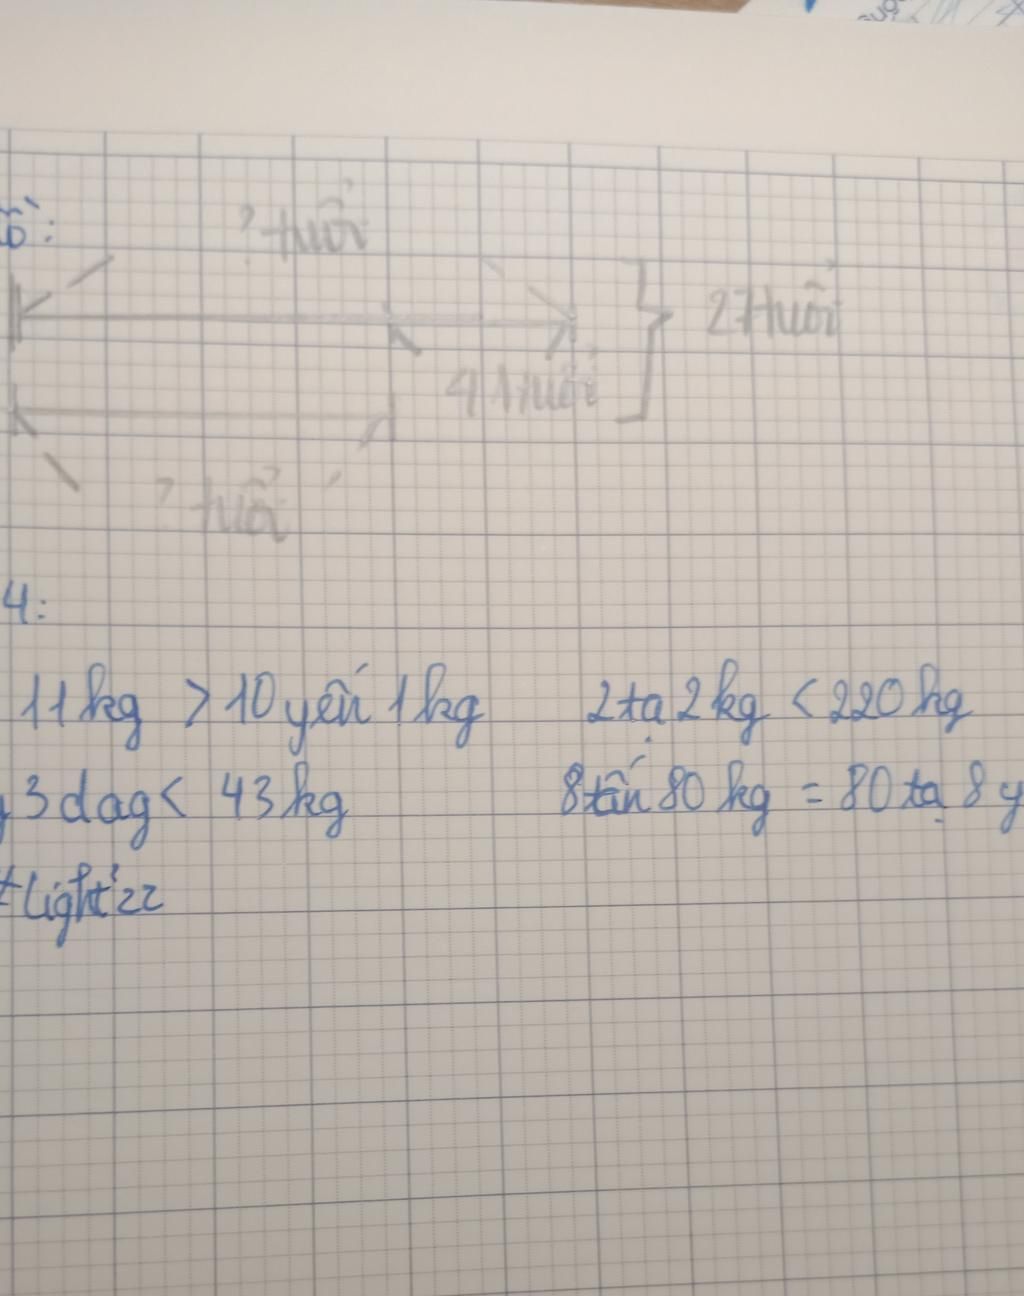 ố:
? tuổi
27 tuổi
4 tuổi
? tuổi
4:
11kg > 10 yến 1kg 2 tạ 2kg < 220kg
3 dag < 43kg 8 tấn 80kg = 80 tạ 8 y